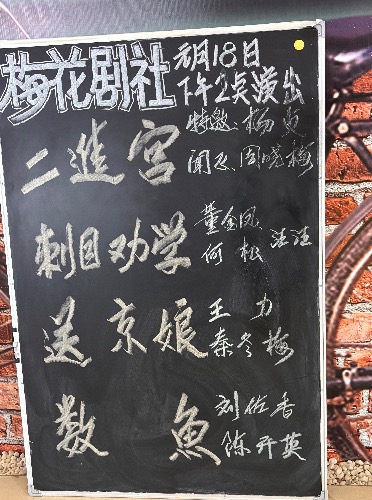 梅花剧社 元月18日
下午2点演出
特邀、杨爽
二进宫 闻飞、周晓梅
刺目劝学 董金凤
何松 汪汪
送京娘 王力
秦冬梅
数鱼 刘佑香
陈开英